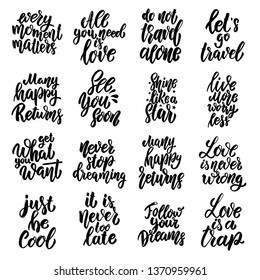 every
moment
matters
All
you need
is
love
do not
travel
alone
let's
go
travel
Many
happy
Returns
See
you
soon
Shine
like a
star
live
more
worry
less
get
What
you
Want
never
stop
dreaming
Many
happy
returns
Love
is never
wrong
just
be
cool
it is
never
too
late
Follow
your
Dreams
Love
is a
trap
shutterstock.com · 1370959961